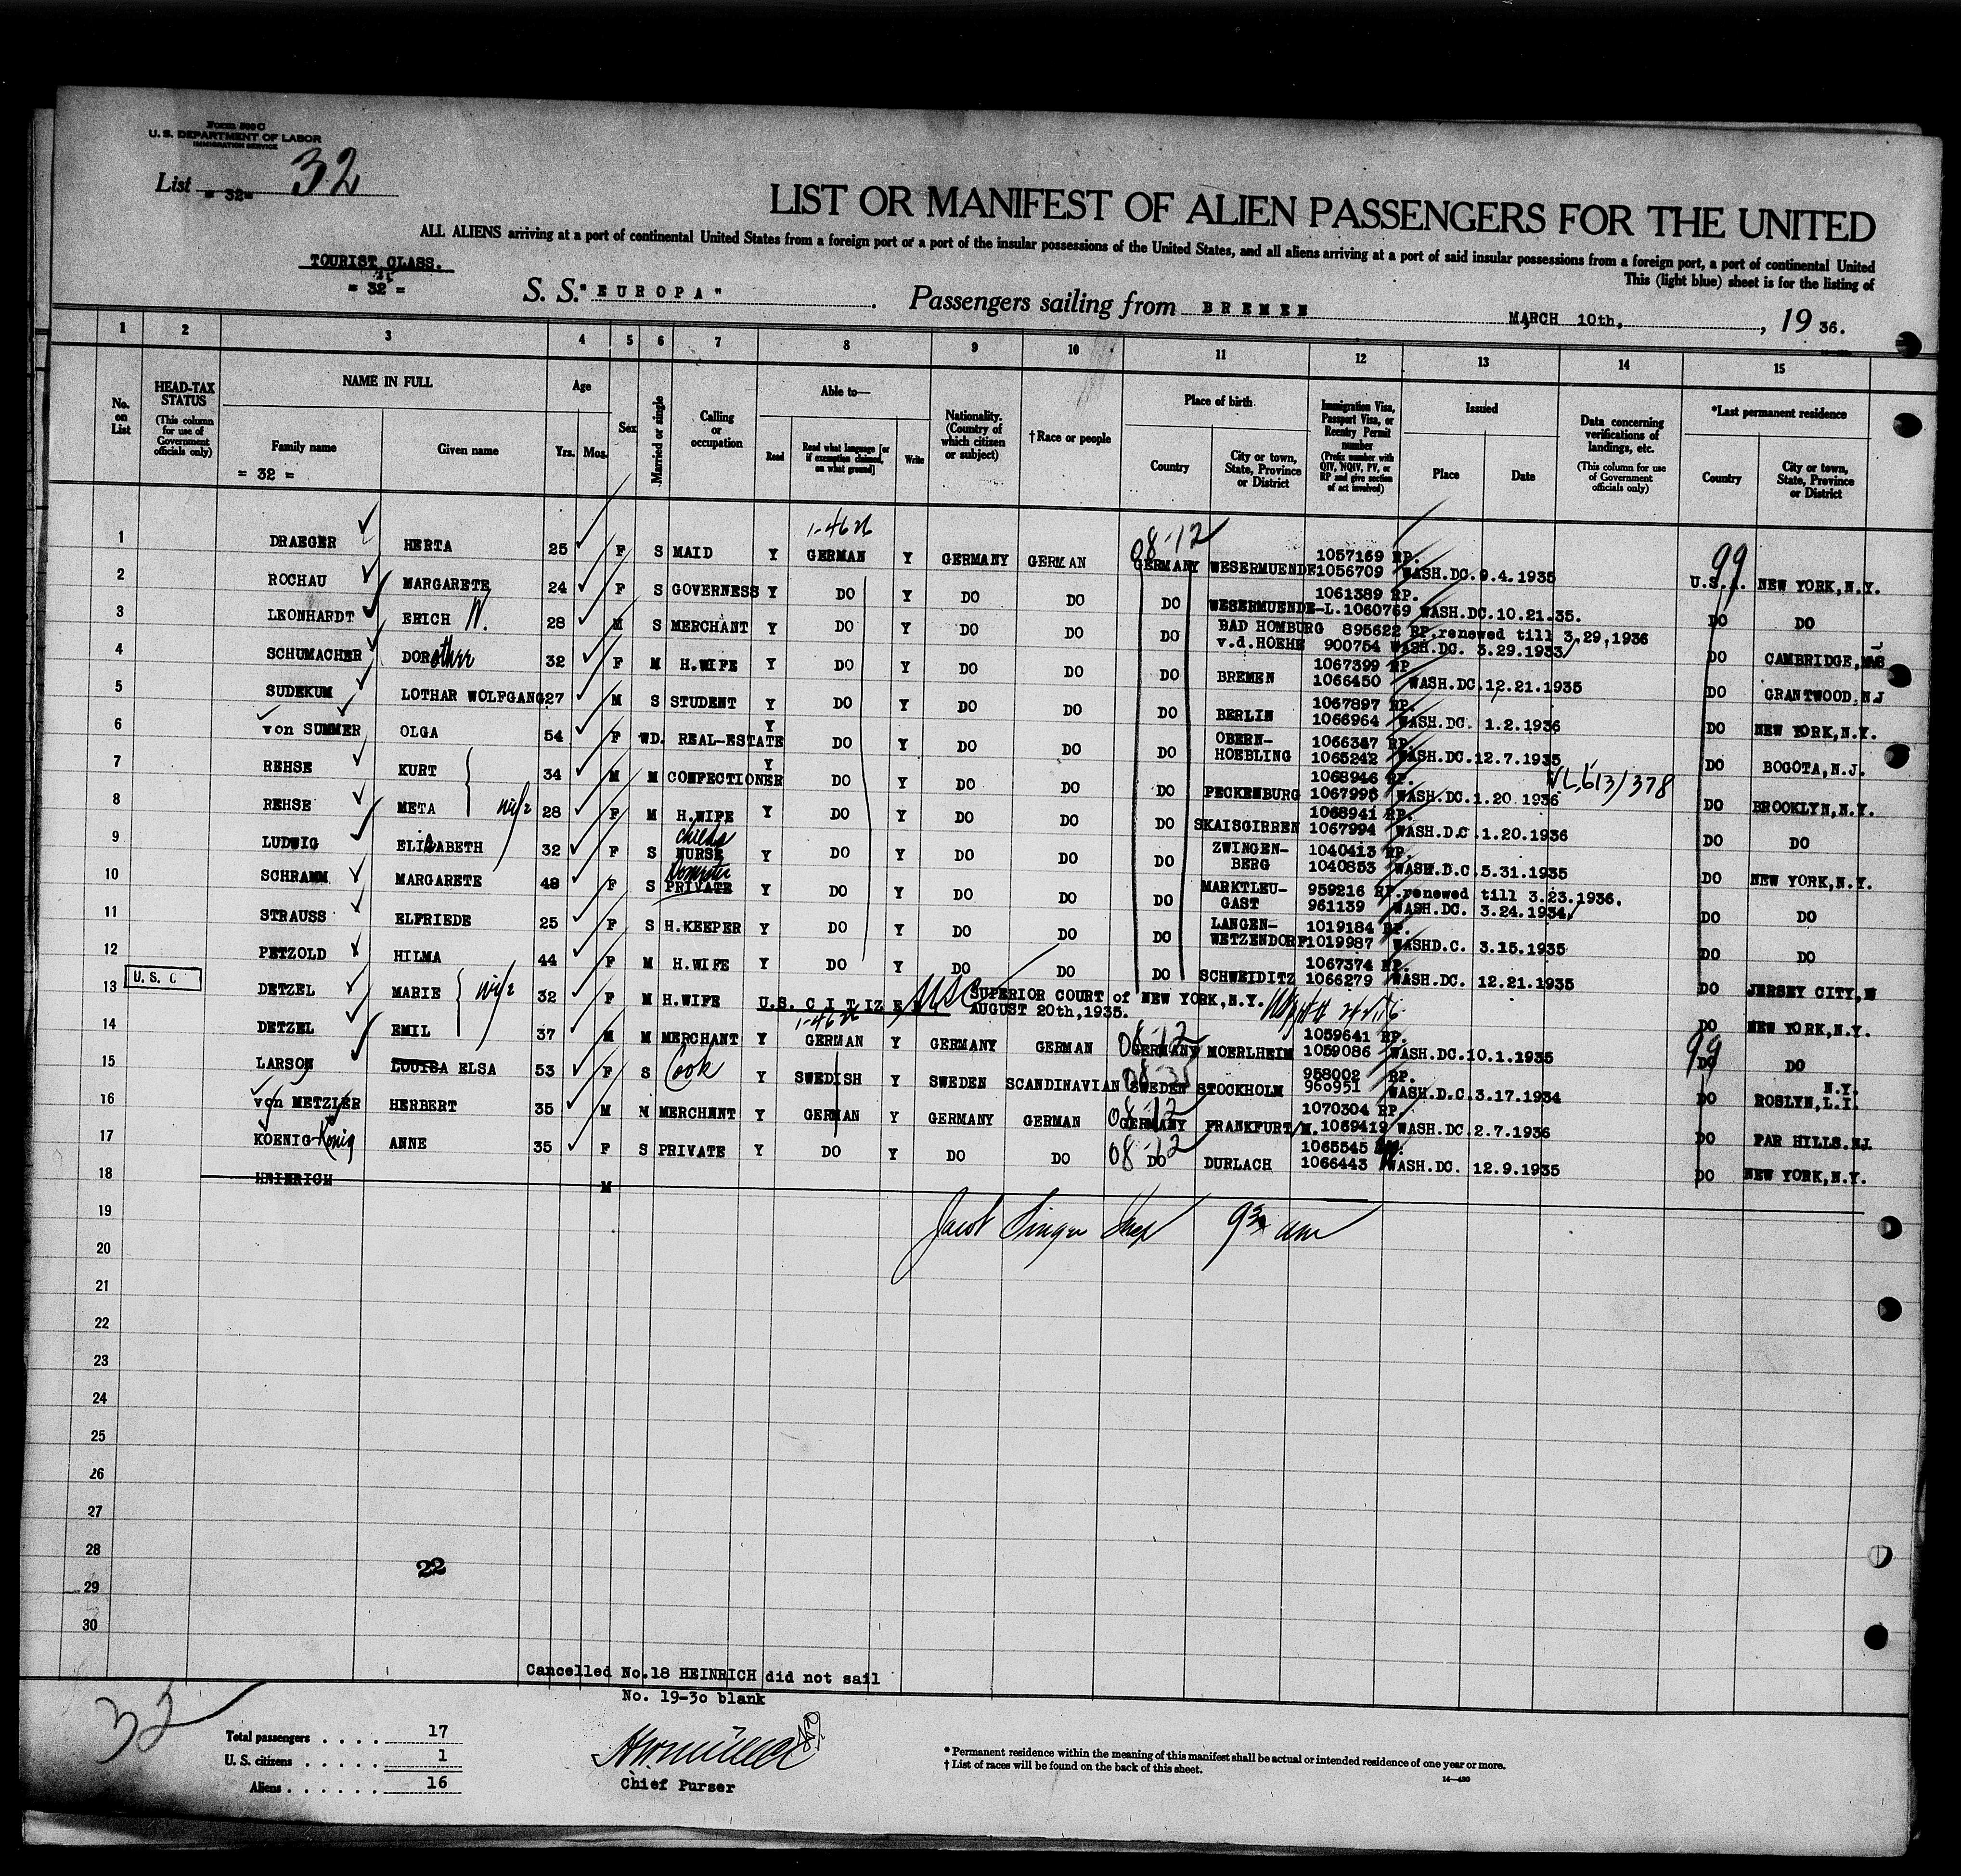 Form 500 C
U. S. DEPARTMENT OF LABOR
IMMIGRATION SERVICE
List = 32= 32
LIST OR MANIFEST OF ALIEN PASSENGERS FOR THE UNITED
ALL ALIENS arriving at a port of continental United States from a foreign port or a port of the insular possessions of the United States, and all aliens arriving at a port of said insular possessions from a foreign port, a port of continental United
This (light blue) sheet is for the listing of
TOURIST CLASS.
= 32 =
S. S. "EUROPA" Passengers sailing from BREMEN MARCH 10th, , 19 36.
1 2 3 4 5 6 7 8 9 10 11 12 13 14 15
No. on List
HEAD-TAX STATUS (This column for use of Government officials only)
NAME IN FULL Family name Given name
= 32 =
Age Yrs. Mos.
Sex
Married or single
Calling or occupation
Able to— Read Read what language [or if exemption claimed, on what ground] Write
Nationality. (Country of which citizen or subject)
†Race or people
Place of birth Country City or town, State, Province or District
Immigration Visa, Passport Visa, or Reentry Permit number (Prefix number with QIV, NQIV, PV, or RP and give section of act involved)
Issued Place Date
Data concerning verifications of landings, etc. (This column for use of Government officials only)
*Last permanent residence Country City or town, State, Province or District
1-4626 08-12 99
1 DRAEGER HERTA 25 F S MAID Y GERMAN Y GERMANY GERMAN GERMANY WESERMUENDE 1057169 RP. 1056709 WASH.DC. 9.4.1935 U.S.A. NEW YORK,N.Y.
2 ROCHAU MARGARETE 24 F S GOVERNESS Y DO Y DO DO DO WESERMUENDE-L. 1061389 RP. 1060769 WASH.DC.10.21.35. DO DO
3 LEONHARDT ERICH W. 28 M S MERCHANT Y DO Y DO DO DO BAD HOMBURG v.d.HOEHE 895622 RP.renewed till 3.29,1936 900754 WASH.DC. 3.29.1933 DO CAMBRIDGE,MAS
4 SCHUMACHER DOR 32 F M H.WIFE Y DO Y DO DO DO BREMEN 1067399 RP 1066450 WASH.DC.12.21.1935 DO GRANTWOOD,NJ
5 SUDEKUM LOTHAR WOLFGANG 27 M S STUDENT Y DO Y DO DO DO BERLIN 1067897 RP. 1066964 WASH.DC. 1.2.1936 DO NEW YORK,N.Y.
6 von SUMMER OLGA 54 F WD. REAL-ESTATE Y DO Y DO DO DO OBERN-HOEBLING 1066347 RP. 1065242 WASH.DC.12.7.1935 DO BOGOTA,N.J.
7 REHSE KURT 34 M M CONFECTIONER Y DO Y DO DO DO PECKENBURG 1068946 RP. 1067995 WASH.DC.1.20 1936 V.L.613/378 DO BROOKLYN,N.Y.
8 REHSE META wife 28 F M H.WIFE Y DO Y DO DO DO SKAISGIRREN 1068941 RP. 1067994 WASH.D.C.1.20.1936 DO DO
9 LUDWIG ELISABETH 32 F S childs NURSE Y DO Y DO DO DO ZWINGEN-BERG 1040413 RP. 1040853 WASH.D.C.5.31.1935 DO NEW YORK,N.Y.
10 SCHRAMM MARGARETE 48 F S Domestic PRIVATE Y DO Y DO DO DO MARKTLEU-GAST 959216 RP.renewed till 3.23.1936. 961139 WASH.DC. 3.24.1934 DO DO
11 STRAUSS ELFRIEDE 25 F S H.KEEPER Y DO Y DO DO DO LANGEN-WETZENDORF 1019184 RP. 1019987 WASHD.C. 3.15.1935 DO DO
12 PETZOLD HILMA 44 F M H.WIFE Y DO Y DO DO DO SCHWEIDITZ 1067374 RP. 1066279 WASH.DC. 12.21.1935 DO JERSEY CITY,N
13 U. S. C DETZEL MARIE wife 32 F M H.WIFE U.S. CITIZEN USC SUPERIOR COURT of NEW YORK,N.Y. AUGUST 20th,1935. DO NEW YORK,N.Y.
1-4626 08-12 99
14 DETZEL EMIL 37 M M MERCHANT Y GERMAN Y GERMANY GERMAN GERMANY MOERLHEIM 1059641 RP. 1059086 WASH.DC.10.1.1935 DO DO
15 LARSON LOUISA ELSA 53 F S Cook Y SWEDISH Y SWEDEN SCANDINAVIAN 08-35 SWEDEN STOCKHOLM 958002 RP. 960951 WASH.D.C.3.17.1934 DO ROSLYN,L.I. N.Y.
16 von METZLER HERBERT 35 M M MERCHANT Y GERMAN Y GERMANY GERMAN 08-12 GERMANY FRANKFURT/M. 1070304 RP. 1069419 WASH.DC.2.7.1936 DO FAR HILLS.NJ.
17 KOENIG-König ANNE 35 F S PRIVATE Y DO Y DO DO 08-12 DO DURLACH 1065545 RP. 1066443 WASH.DC. 12.9.1935 DO NEW YORK,N.Y.
18 HEINRICH M
19 Jacob Singer Insp 9 30 am
20
21
22
23
24
25
26
27
28
22
29
30
Cancelled No.18 HEINRICH did not sail
No. 19-30 blank
32
Total passengers . . . . 17
U. S. citizens . . . . . 1
Aliens . . . . . . 16
Chief Purser
* Permanent residence within the meaning of this manifest shall be actual or intended residence of one year or more.
† List of races will be found on the back of this sheet.
14—430